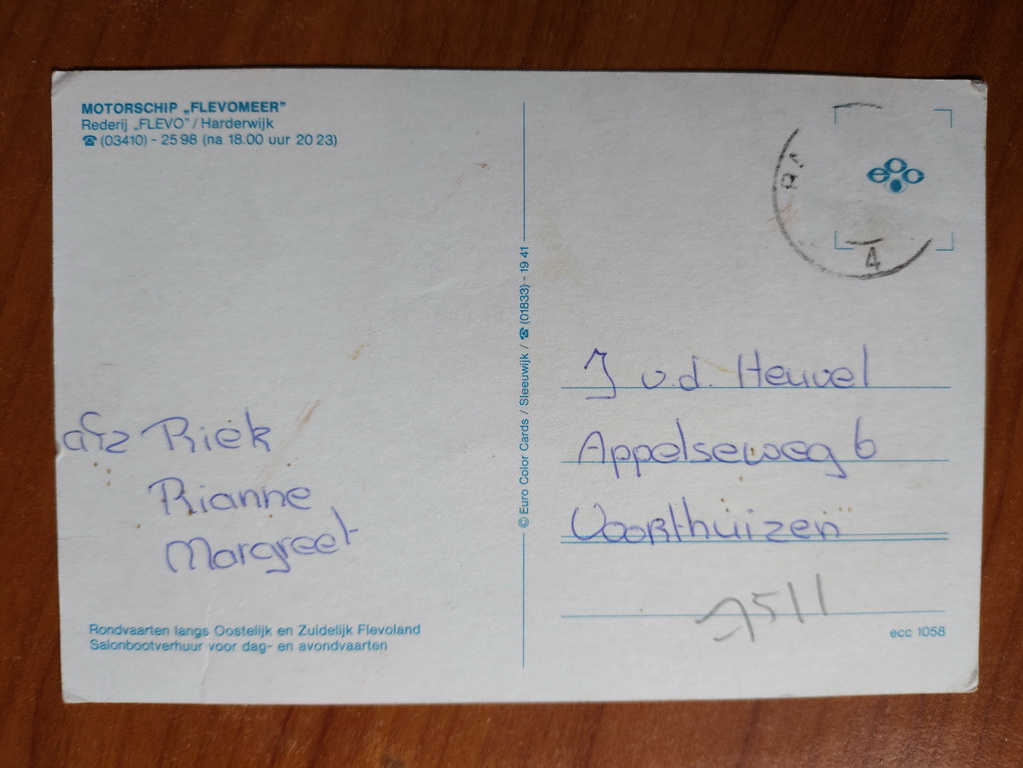 MOTORSCHIP „FLEVOMEER”
Rederij „FLEVO” / Harderwijk
☎ (03410) - 25 98 (na 18.00 uur 20 23)
afz Riek
Rianne
Margreet
Rondvaarten langs Oostelijk en Zuidelijk Flevoland
Salonbootverhuur voor dag- en avondvaarten
© Euro Color Cards / Sleeuwijk / ☎ (01833) - 19 41
ecc
4
J v.d. Heuvel
Appelseweg 6
Voorthuizen
7511
ecc 1058